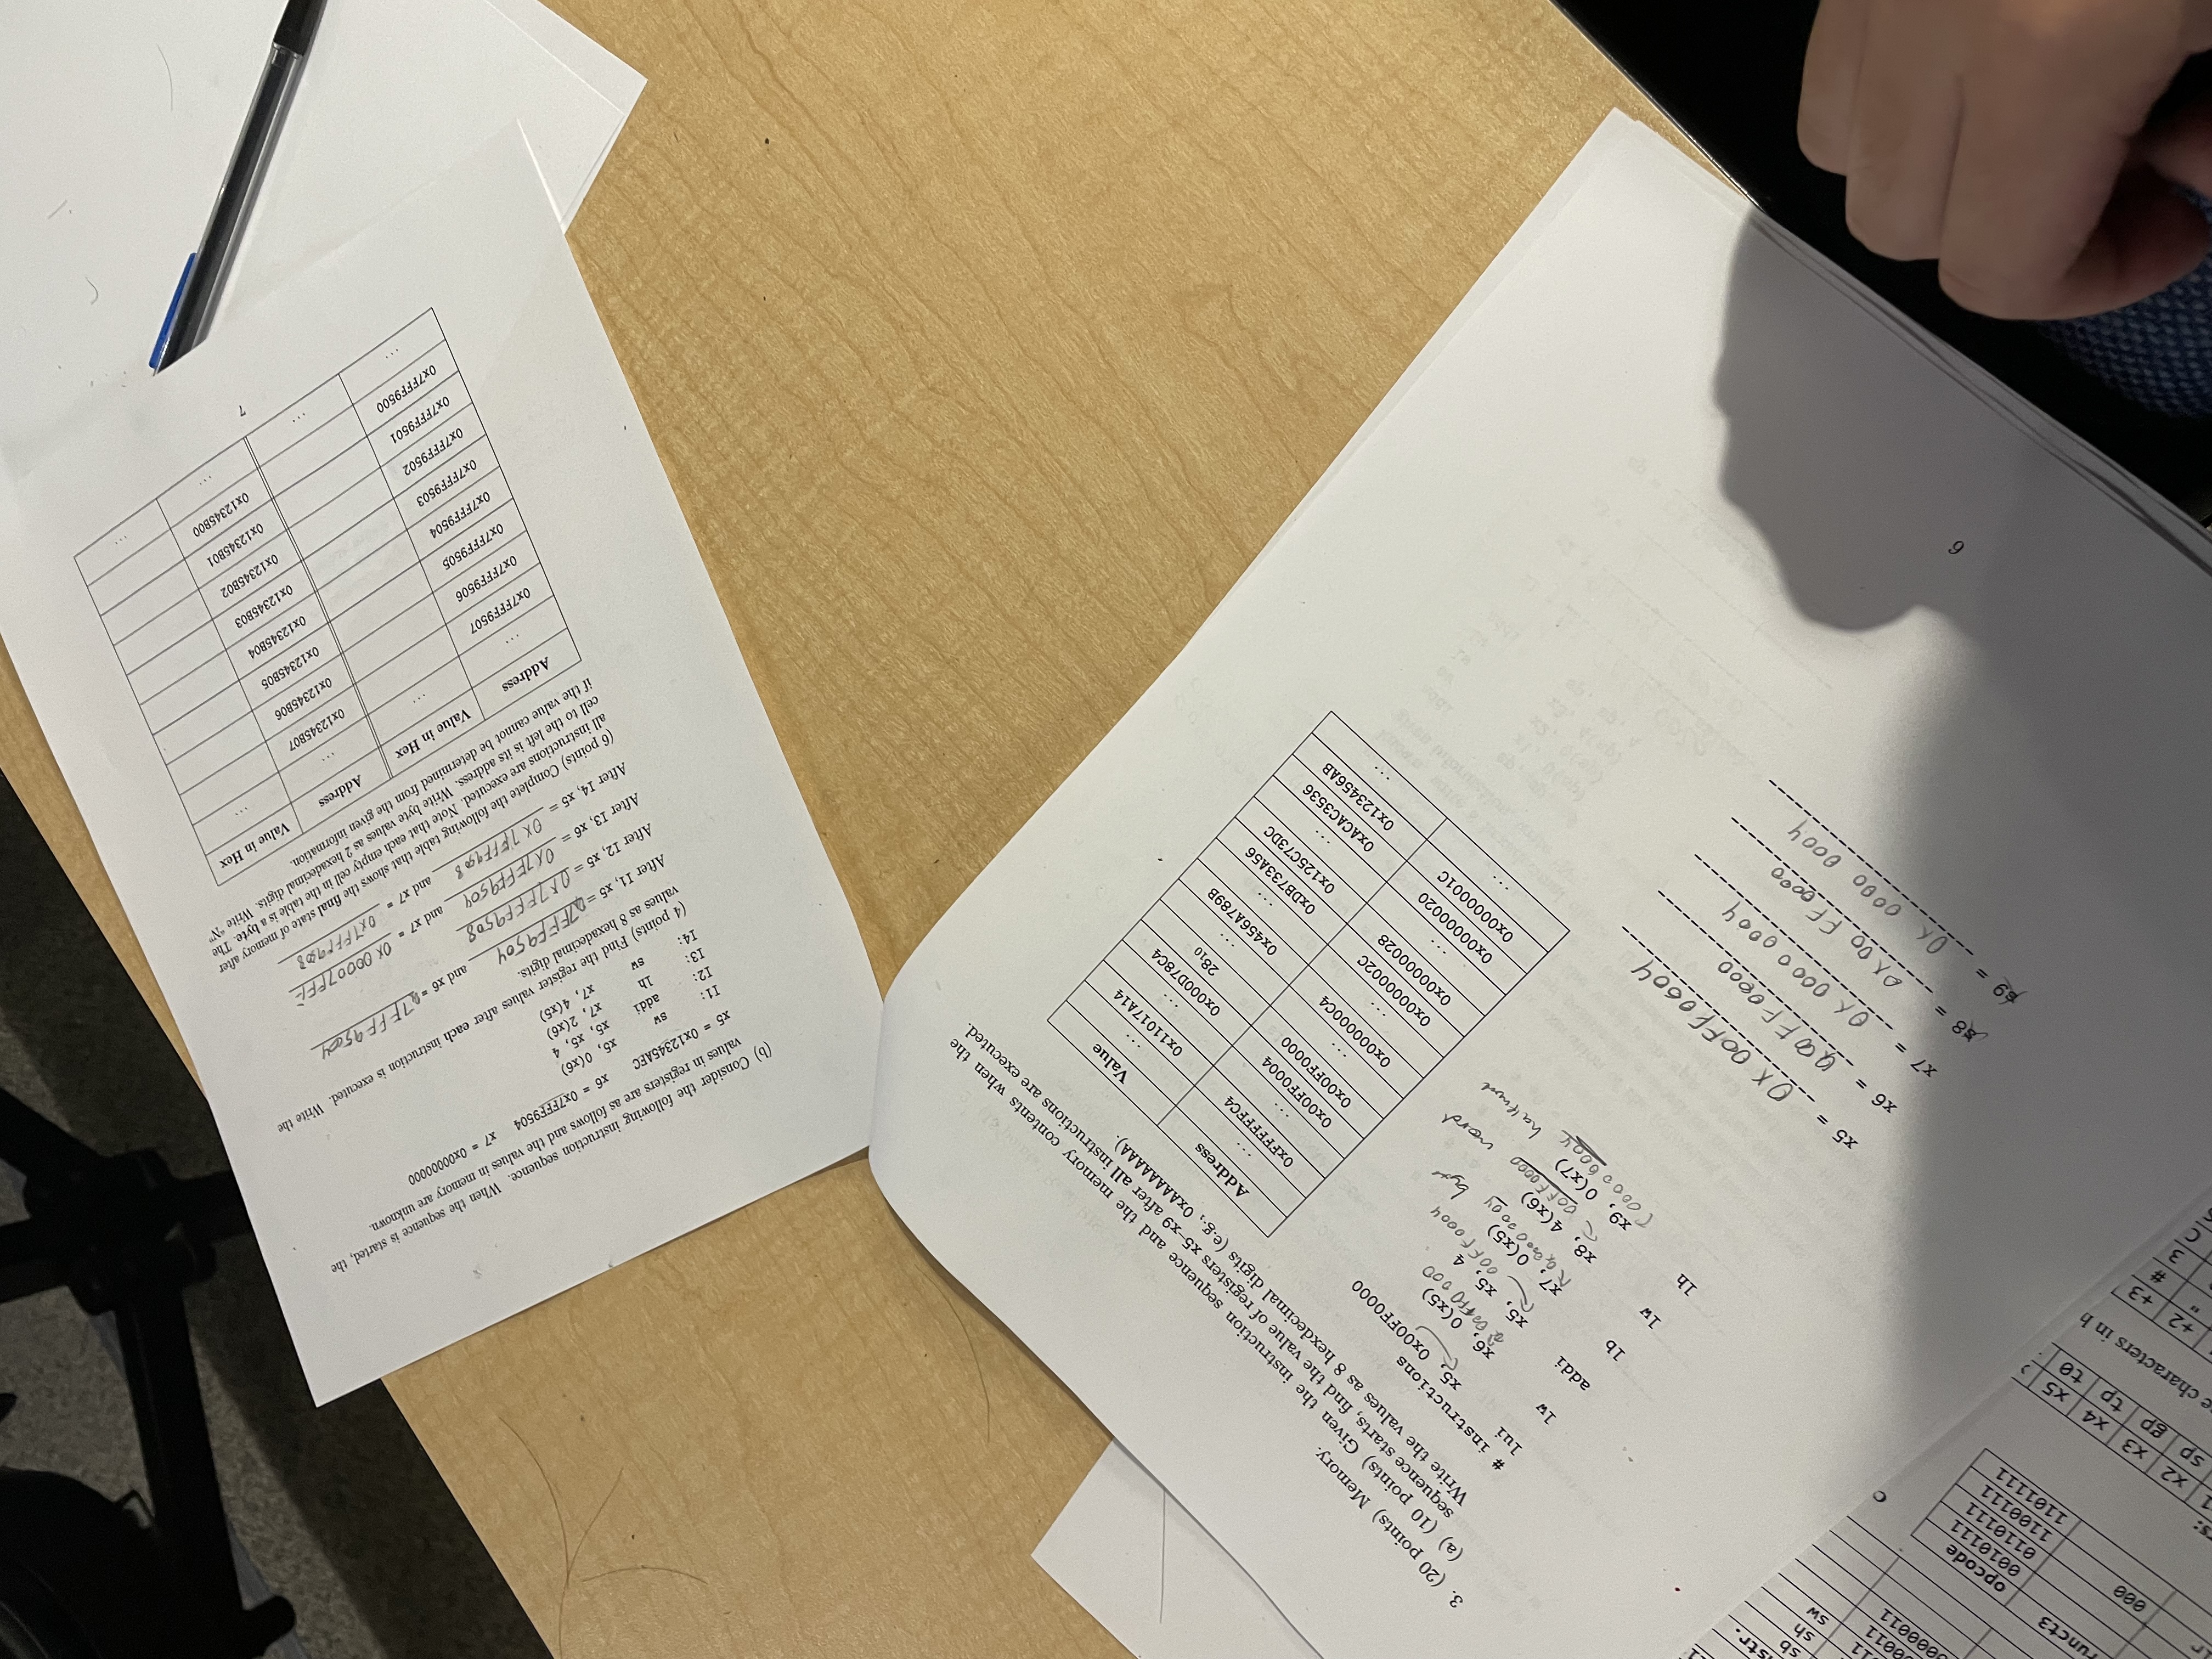 funct3
opcode
000
0010111
0110111
1100111
1101111
sb
sh
sw
x2 x3 x4 x5
sp gp tp t0
characters in
+2 +3
" #
3
C
3. (20 points) Memory.
(a) (10 points) Given the instruction sequence and the memory contents when the
sequence starts, find the value of registers x5–x9 after all instructions are executed.
Write the values as 8 hexdecimal digits (e.g., 0xAAAAAAAA).
# instructions
lui x5, 0x00FF0000
lw x6, 0(x5)
00FF0000
addi x5, x5, 4
00FF0004
lb x7, 0(x5)
byte
lw x8, 4(x6)
00FF0000 word
lh x9, 0(x7)
Address Value
... ...
0xFFFFFFC4 0x11017A14
... ...
0x00FF0004 0x000D78C4
0x00FF0000 28₁₀
... ...
0x000000C4 0x456A789B
... ...
0x0000002C 0xDB733A56
0x00000028 0x125C73DC
... ...
0x00000020 0xACAC3536
0x0000001C 0x123456AB
... ...
x5 = 0x00FF0004
x6 = 00FF0000
x7 = 0x 0000 0004
x8 = 0x00 FF0000
x9 = 0x 0000 0004
6
(b) Consider the following instruction sequence. When the sequence is started, the
values in registers are as follows and the values in memory are unknown.
x5 = 0x12345AFC x6 = 0x7FFF9504 x7 = 0x00000000
I1: sw x5, 0(x6)
I2: addi x5, x5, 4
I3: lh x7, 2(x6)
I4: sw x7, 4(x5)
(4 points) Find the register values after each instruction is executed. Write the
values as 8 hexadecimal digits.
After I1, x5 = 7FFF9504 and x6 = 7FFF9504
After I2, x5 = 0x7FFF9508
After I3, x6 = 0x7FFF9504 and x7 = 0x00007FFF
After I4, x5 = 0x7FFF9508 and x7 = 0x7FFF9508
(6 points) Complete the following table that shows the final state of memory after
all instructions are executed. Note that each empty cell in the table is a byte. The
cell to the left is its address. Write byte values as 2 hexadecimal digits. Write "N"
if the value cannot be determined from the given information.
Address Value in Hex Address Value in Hex
... ... ... ...
0x7FFF9507 0x12345B07
0x7FFF9506 0x12345B06
0x7FFF9505 0x12345B05
0x7FFF9504 0x12345B04
0x7FFF9503 0x12345B03
0x7FFF9502 0x12345B02
0x7FFF9501 0x12345B01
0x7FFF9500 0x12345B00
... ... ... ...
7